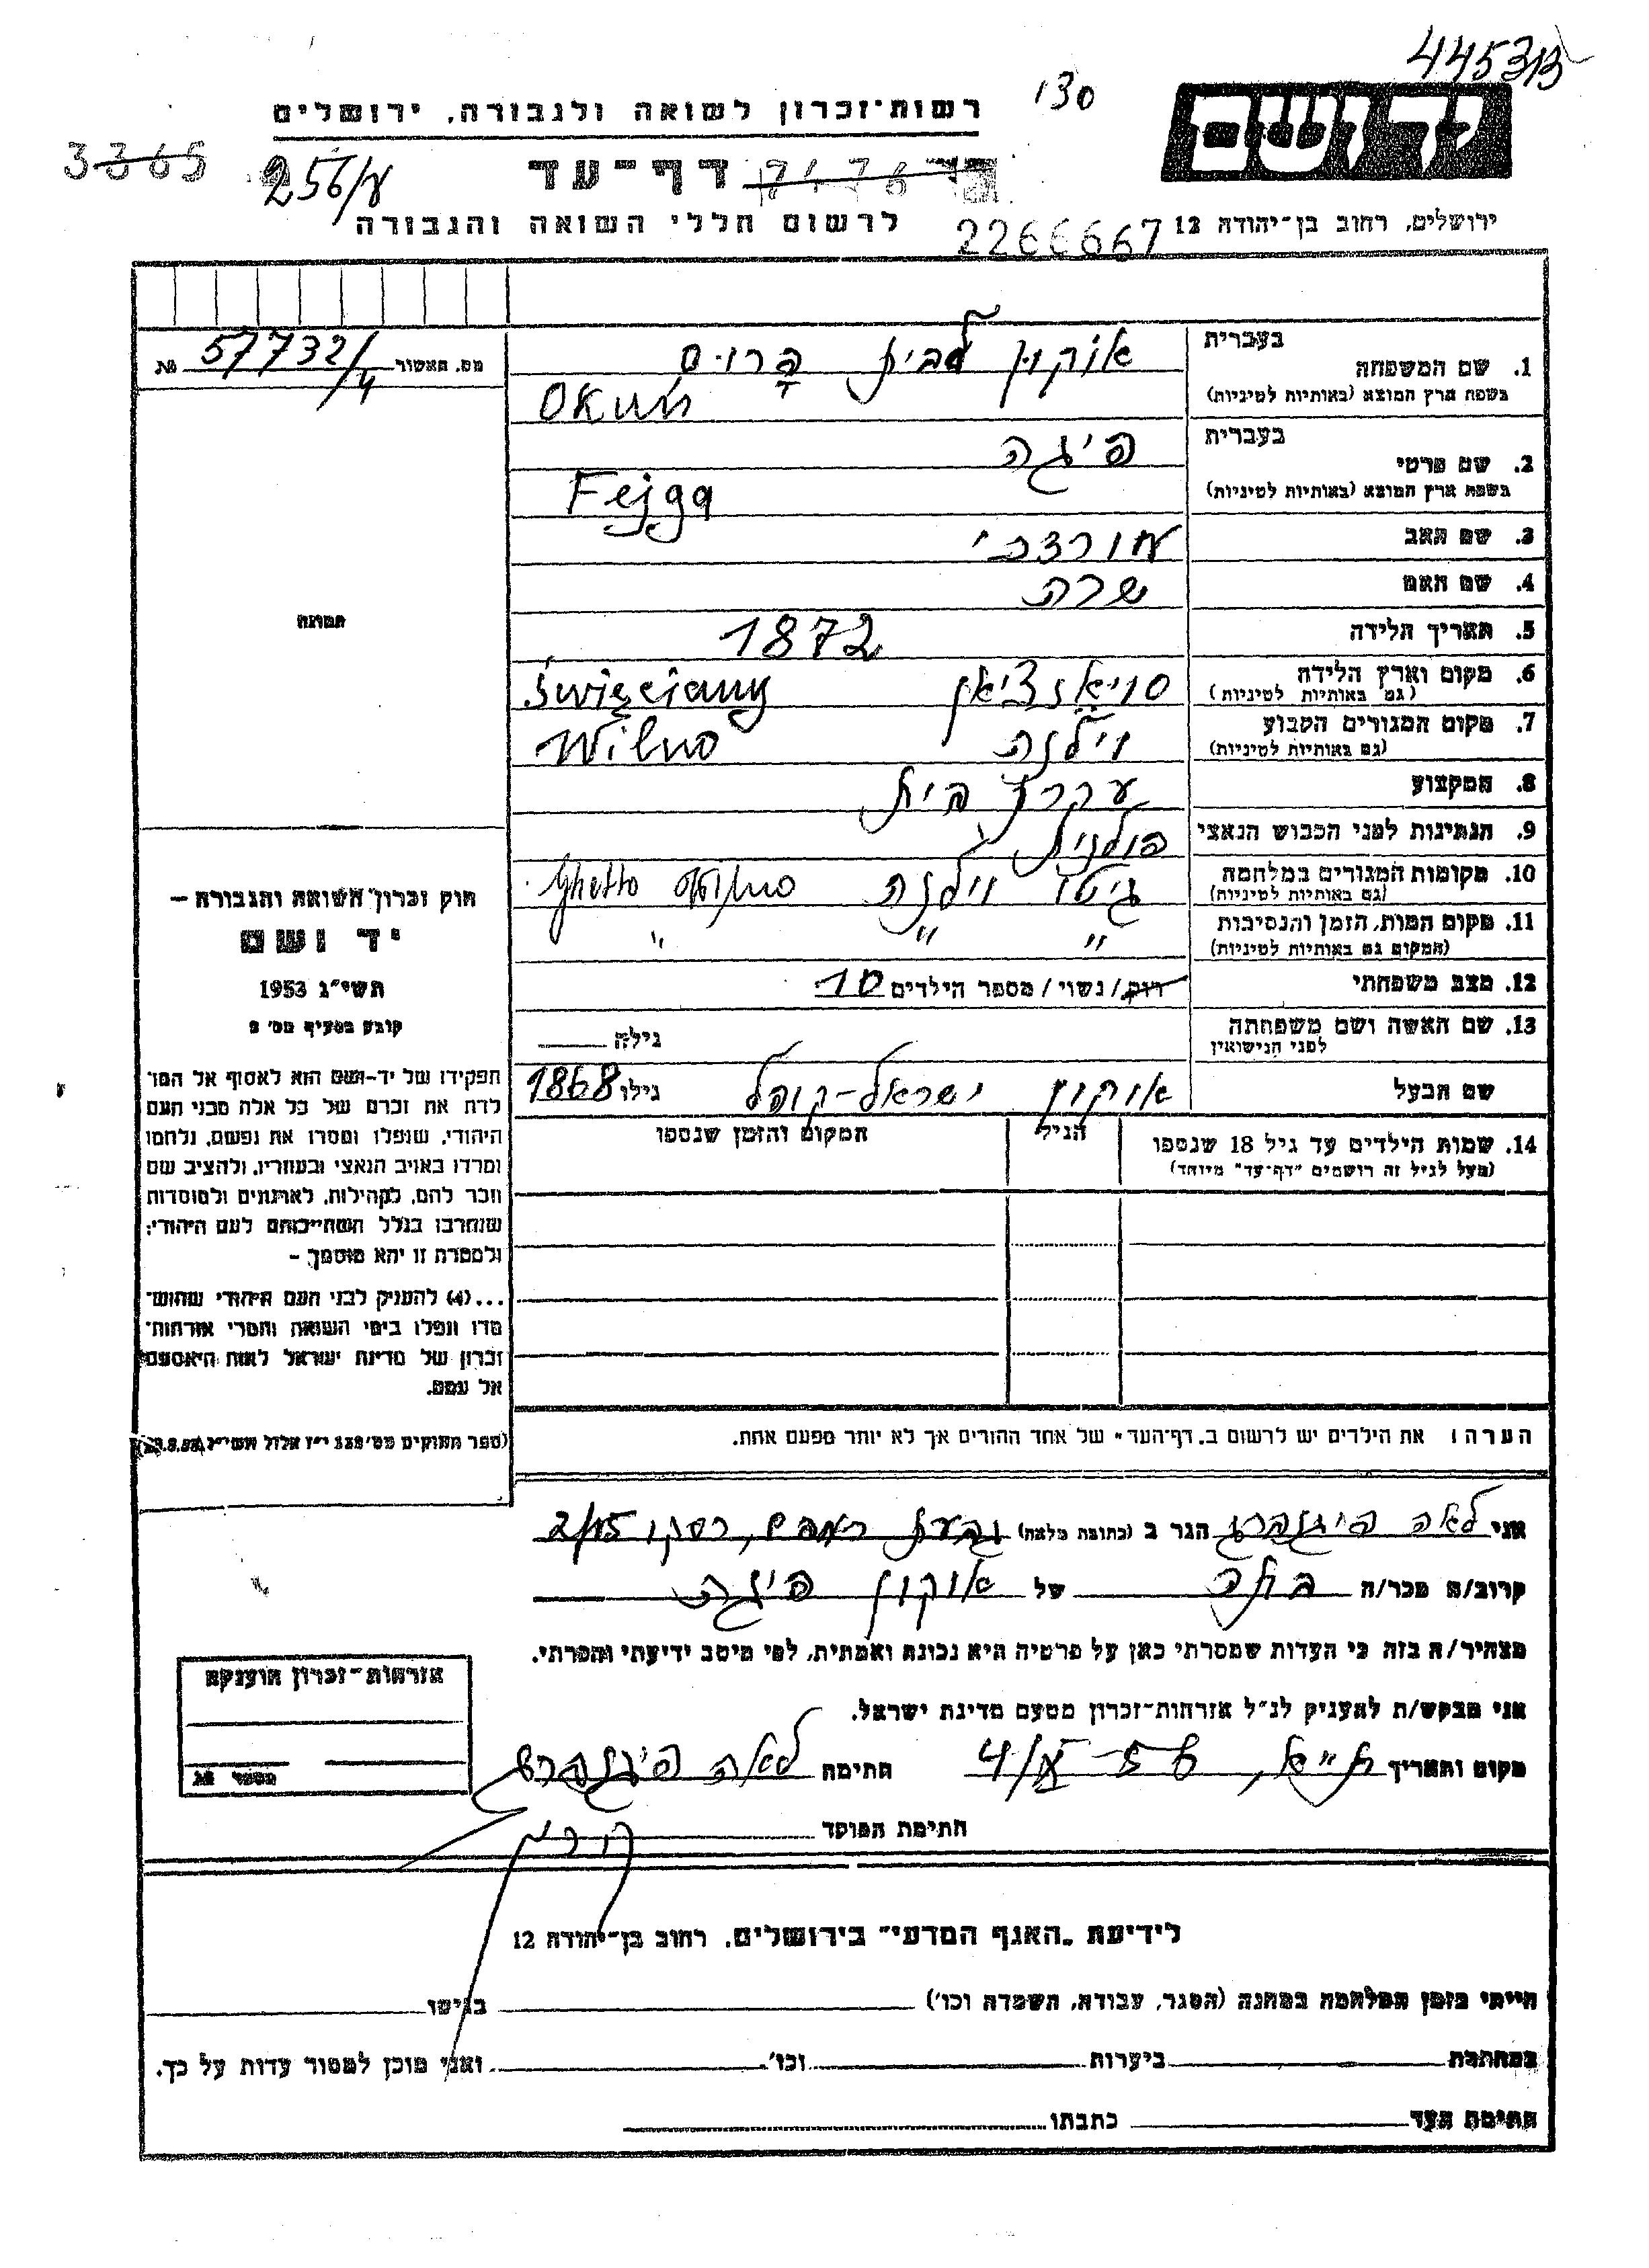 445313
130
רשות־זכרון לשואה ולגבורה, ירושלים
יד ושם
3365
256/ע
דף־עד
לרשום חללי השואה והגבורה
2266667
ירושלים, רחוב בן־יהודה 12
מס. האשור № 57732/4
1. שם המשפחה
בעברית
אוקון לבית פרוס
בשפת ארץ המוצא (באותיות לטיניות)
Okuń
2. שם פרטי
בעברית
פיגה
בשפת ארץ המוצא (באותיות לטיניות)
Fejga
3. שם האב
מורדכי
4. שם האם
שרה
5. תאריך הלידה
1872
6. מקום וארץ הלידה
(גם באותיות לטיניות)
Święciany
7. מקום המגורים הקבוע
(גם באותיות לטיניות)
וילנה Wilno
8. המקצוע
עקרת בית
9. הנתינות לפני הכבוש הנאצי
פולנית
10. מקומות המגורים במלחמה
(גם באותיות לטיניות)
גיטו וילנה Ghetto Wilno
11. מקום המות, הזמן והנסיבות
(המקום גם באותיות לטיניות)
" " "
12. מצב משפחתי
רוק/ נשוי / מספר הילדים 10
13. שם האשה ושם משפחתה
לפני הנישואין
גילה
שם הבעל
אוקון ישראל-קופל
גילו 1868
14. שמות הילדים עד גיל 18 שנספו
(מעל לגיל זה רושמים "דף־עד" מיוחד)
הגיל
המקום והזמן שנספו
הערה: את הילדים יש לרשום ב„דף־העד" של אחד ההורים אך לא יותר מפעם אחת.
תמונה
חוק זכרון השואה והגבורה –
יד ושם
תשי"ג 1953
קובע בסעיף מס' 2
תפקידו של יד-ושם הוא לאסוף אל המו־
לדת את זכרם של כל אלה מבני העם
היהודי, שנפלו ומסרו את נפשם, נלחמו
ומרדו באויב הנאצי ובעוזריו, ולהציב שם
וזכר להם, לקהילות, לארגונים ולמוסדות
שנחרבו בגלל השתייכותם לעם היהודי;
ולמטרת זו יהא מוסמך –
...(4) להעניק לבני העם היהודי שהוש־
מדו ונפלו בימי השואה והמרי אזרחות־
זכרון של מדינת ישראל לאות היאספם
אל עמם.
(ספר החוקים מס' 132 י"ז אלול תשי"ג 28.8.53)
אני לאה פיגנברג הגר ב (כתובת מלאה) גבעת רמב"ם, רסקו 2/15
קרוב/ה מכר/ה בתה של אוקון פיגה
מצהיר/ה בזה כי העדות שמסרתי כאן על פרטיה היא נכונה ואמתית, לפי מיטב ידיעתי והכרתי.
אני מבקש/ת להעניק לנ"ל אזרחות־זכרון מטעם מדינת ישראל.
מקום ותאריך ת"א, חתימה לאה פיגנברג
חתימת הפוקד
אזרחות־זכרון הוענקה
מספר
לידיעת „האגף המדעי" בירושלים, רחוב בן־יהודה 12
הייתי בזמן המלחמה במחנה (הסגר, עבודה, השמדה וכו') בגיטו
במחתרת ביערות וכו' ואני מוכן למסור עדות על כך.
חתימת העד כתבתו